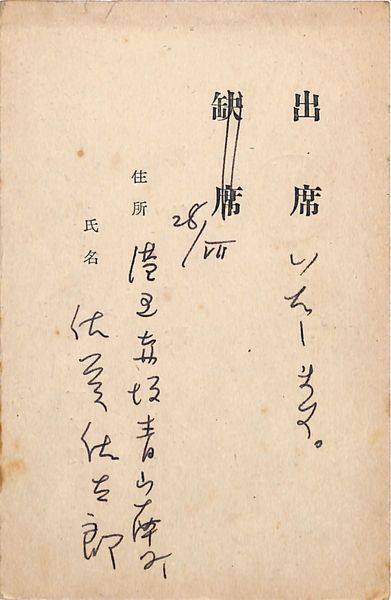 出席いたします。
缺席
28/VII
住所 港区赤坂青山
氏名 佐
佐太郎